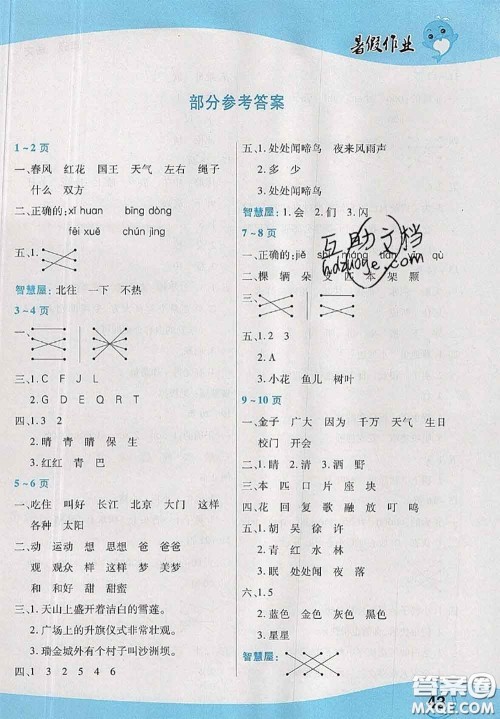 暑假作业
部分参考答案
1~2页
一、春风 红花 国王 天气 左右 绳子
什么 双方
二、正确的:xǐ huan bīng dòng
fēi xuě chūn jìng
五、1.
智慧屋:北往 一下 不热
3~4页
一、
三、1.C F J L
2.G D E Q R T
四、1.3 2
2.晴 青 睛 保 生
3.红红 青 巴
5~6页
一、吃住 叫好 长江 北京 大门 这样
各种 太阳
二、动 运动 想 思想 爸 爸爸
观 观众 样 一样 梦 梦乡
和 和好 甜 甜蜜
三、1.天山上盛开着洁白的雪莲。
2.广场上的升旗仪式非常壮观。
3.瑞金城外有个村子叫沙洲坝。
四、1 3 2 5 4 6
五、1.处处闻啼鸟 夜来风雨声
2.多 少
3.处处闻啼鸟
智慧屋:1.会 2.们 3.闪
7~8页
一、正确的:jiě
二、棵 辆 朵 支 匹 本 架 颗
三、
五、1.2 3
2.A
3.小花 鱼儿 树叶
9~10页
一、金子 广大 因为 千万 天气 生日
校门 开会
三、本 四 口 片 座 块
四、花 回 复 歌 融 放 叮 鸣
五、1.胡 吴 徐 许
2.青 红 水 林
3.闻 眠 雪 落
六、1.5
2.蓝色 金色 灰色 蓝色
3.星星
智慧屋:
互助文档
hdzuoye.com
43
答案圈
MXQE.COM